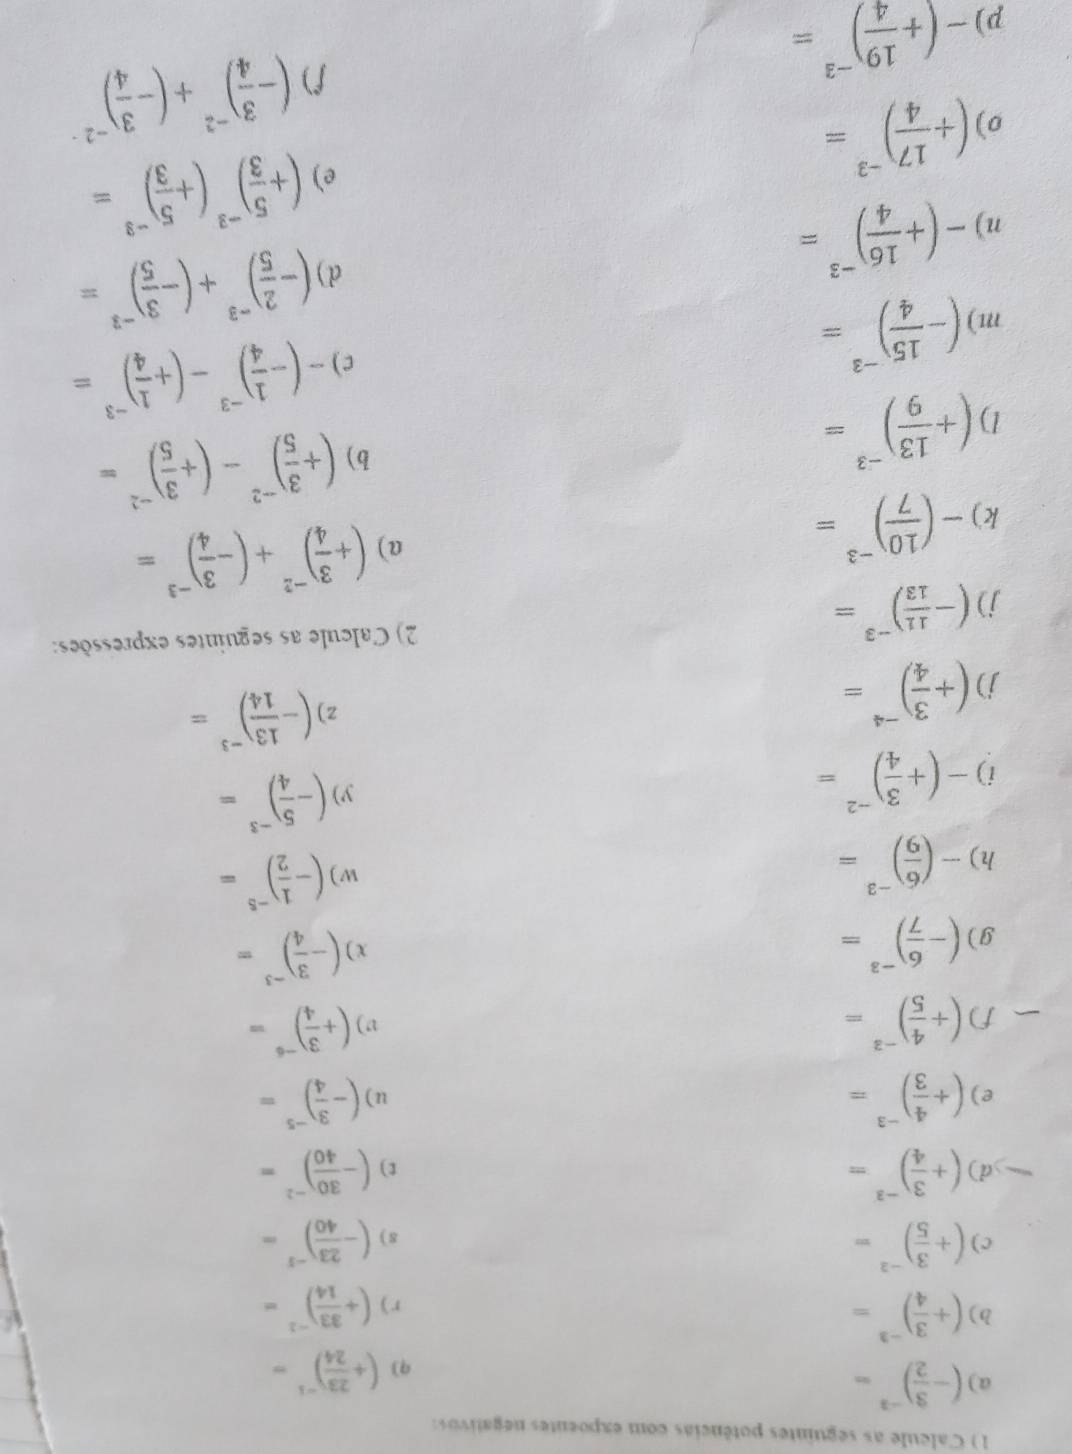 1) Calcule as seguintes potências com expoentes negativos:
a) (− 3/2)^−3 =
b) (+ 3/4)^−3 =
c) (+ 3/5)^−3 =
d) (+ 3/4)^−3 =
e) (+ 4/3)^−3 =
f) (+ 4/5)^−3 =
g) (− 6/7)^−3 =
h) − (6/9)^−3 =
i) − (+ 3/4)^−2 =
j) (+ 3/4)^−4 =
j) (− 11/13)^−3 =
k) − (10/7)^−3 =
l) (+ 13/9)^−3 =
m) (− 15/4)^−3 =
n) − (+ 16/4)^−3 =
o) (+ 17/4)^−3 =
p) − (+ 19/4)^−3 =
q) (+ 23/24)^−1 =
r) (+ 33/14)^−2 =
s) (− 23/40)^−3 =
t) (− 30/40)^−2 =
u) (− 3/4)^−5 =
v) (+ 3/4)^−6 =
x) (− 3/4)^−3 =
w) (− 1/2)^−5 =
y) (− 5/4)^−3 =
z) (− 13/14)^−3 =
2) Calcule as seguintes expressões:
a) (+ 3/4)^−2 + (− 3/4)^−3 =
b) (+ 3/5)^−2 − (+ 3/5)^−2 =
c) − (− 1/4)^−3 − (+ 1/4)^−3 =
d) (− 2/5)^−3 + (− 3/5)^−3 =
e) (+ 5/3)^−3 (+ 5/3)^−3 =
f) (− 3/4)^−2 + (− 3/4)^−2 .